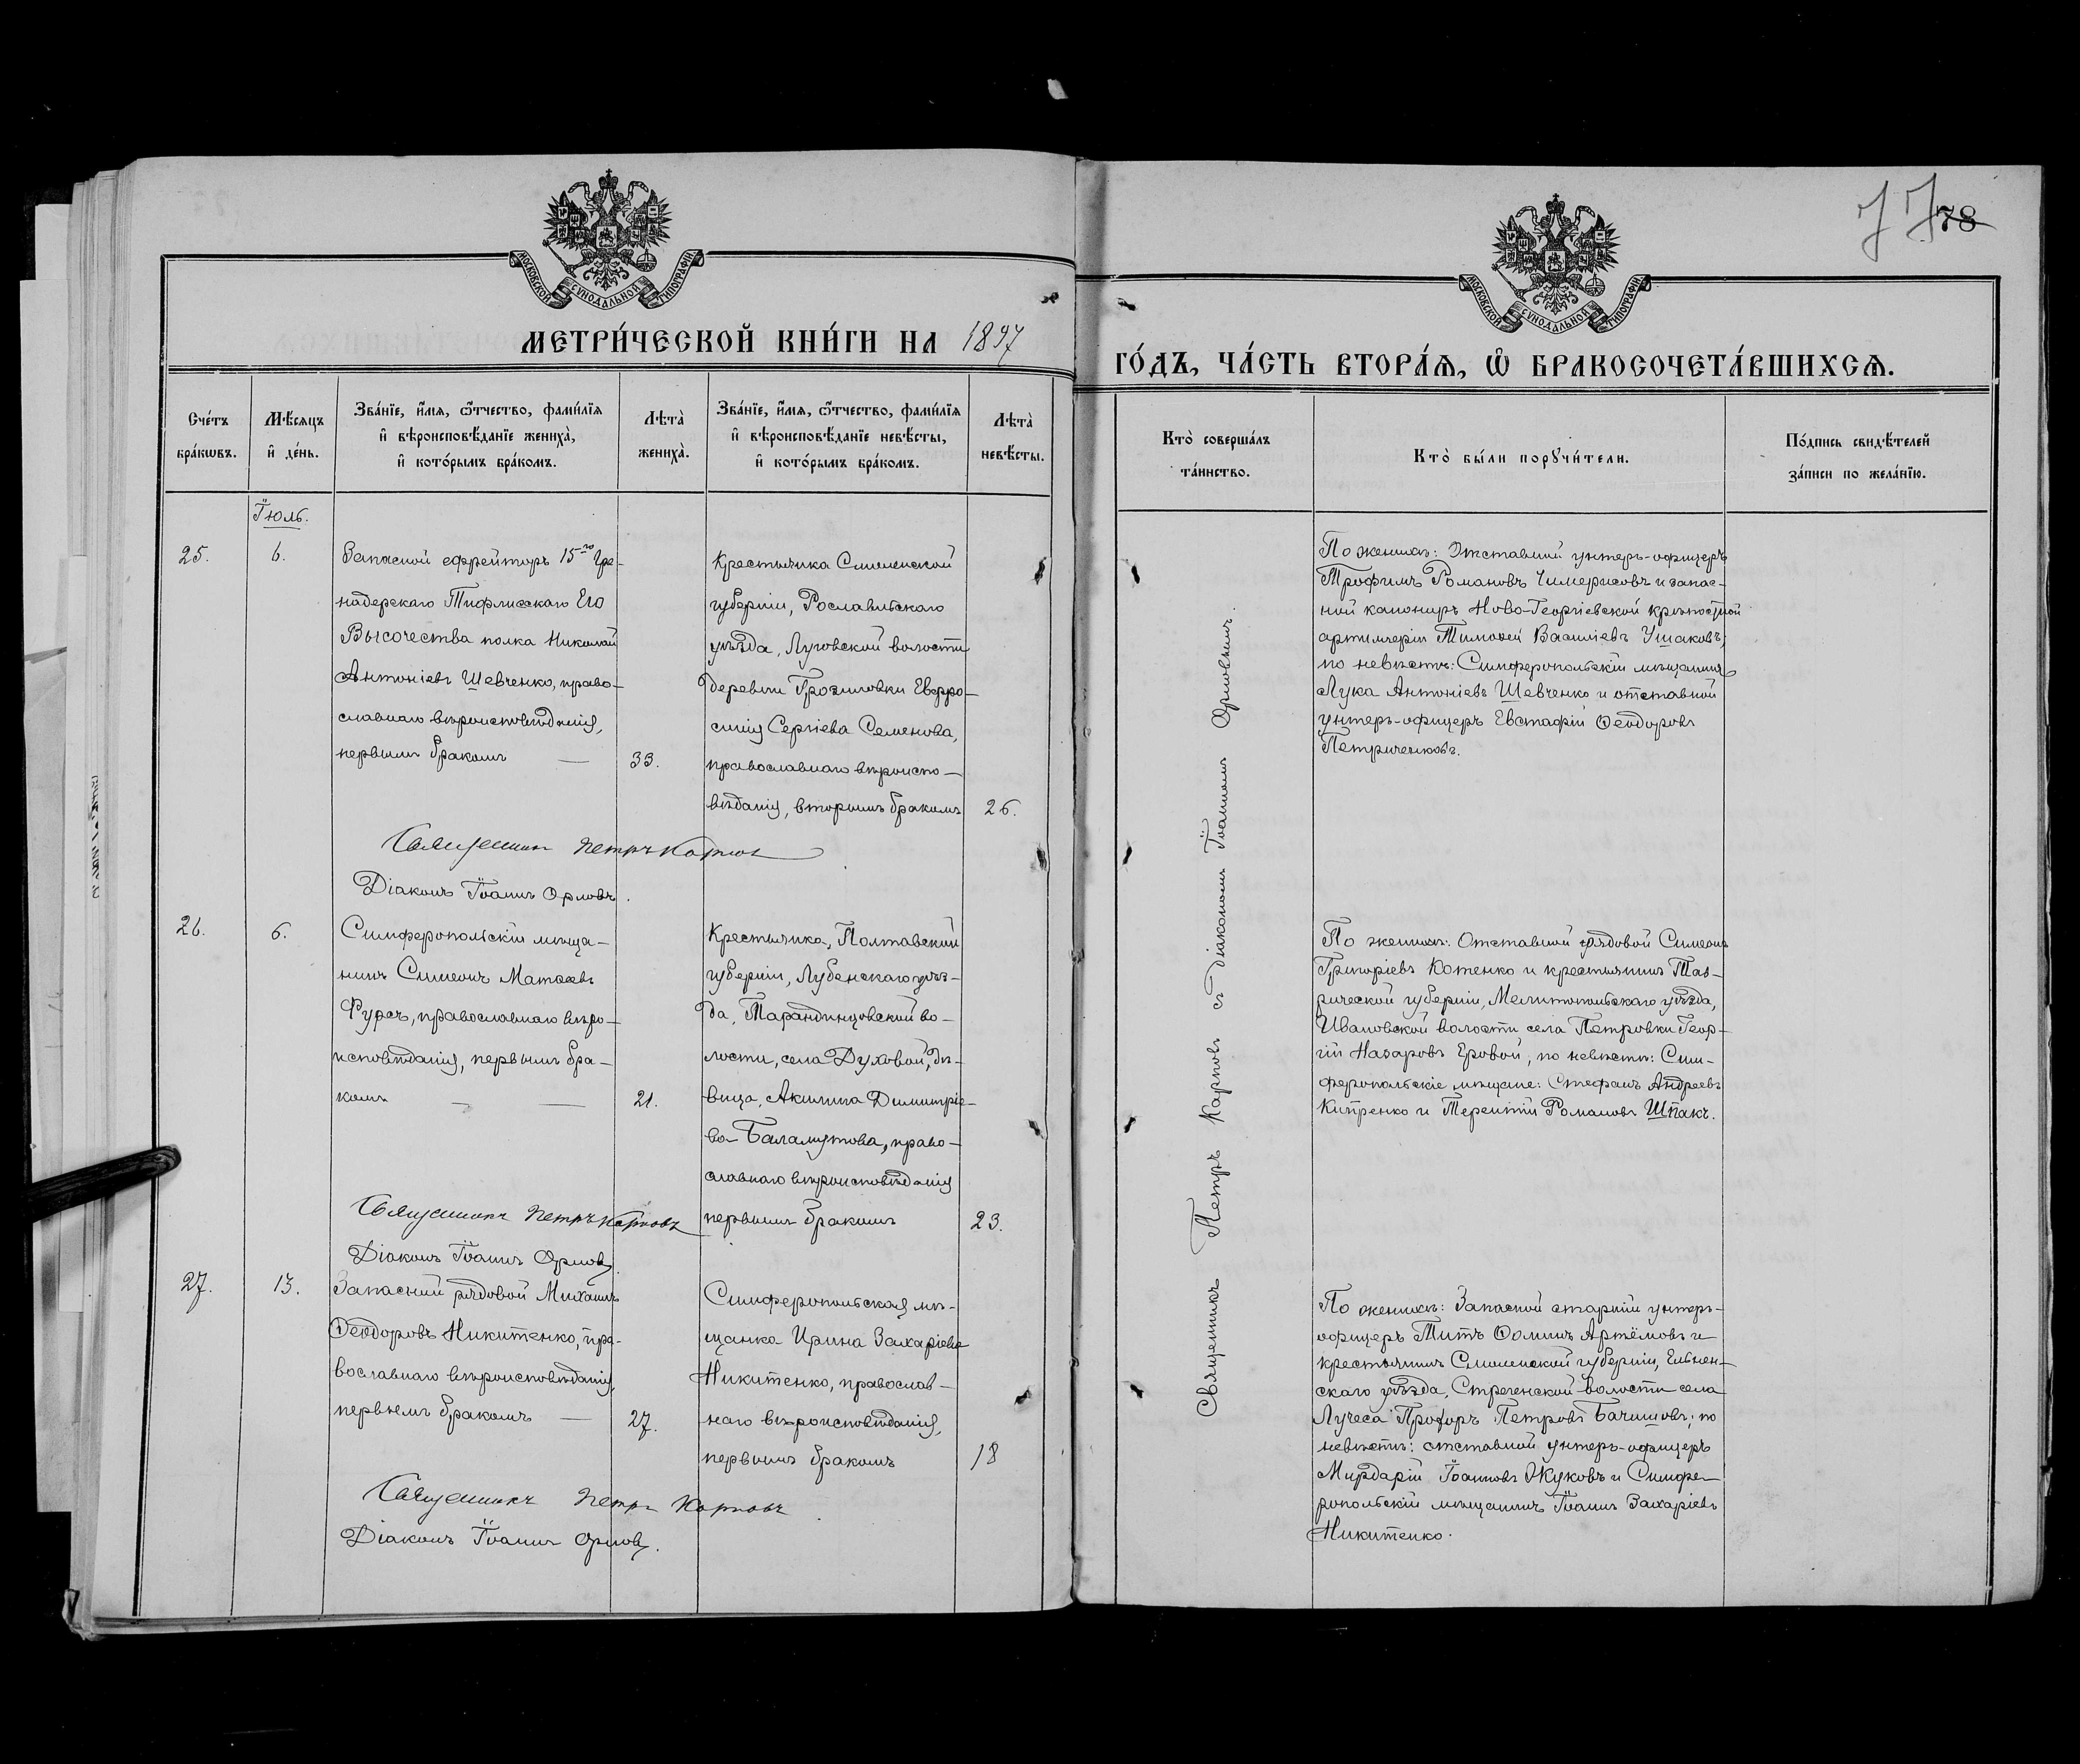 77 78
МОСКОВСКОЙ СѴНОДАЛЬНОЙ ТИПОГРАФІИ.
МОСКОВСКОЙ СѴНОДАЛЬНОЙ ТИПОГРАФІИ.
МЕТРИ́ЧЕСКОЙ КНИ́ГИ НА 1897
ГО́ДЪ, ЧА́СТЬ ВТОРА́Ѧ, Ѽ БРАКОСОЧЕТА́ВШИХСѦ.
Сче́тъ
бра́кѡвъ.
Мѣ́сяцъ
и҆ де́нь.
Зва́нїе, и҆́мя, ѻ҆́тчество, фами́лїя
и҆ вѣроисповѣ́данїе жениха̀,
и҆ кото́рымъ бра́комъ.
Лѣта̀
жениха̀.
Зва́нїе, и҆́мя, ѻ҆́тчество, фами́лїя
и҆ вѣроисповѣ́данїе невѣ́сты,
и҆ кото́рымъ бра́комъ.
Лѣта̀
невѣ́сты.
Кто̀ соверша́лъ
та́инство.
Кто̀ бы́ли порꙋчи́тели.
По́дпись свидѣ́телей
за́писи по жела́нїю.
Іюль.
25.
6.
Запасной ефрейторъ 15го Гре-
надерскаго Тифлисскаго Его
Высочества полка Николай
Антоніевъ Шевченко, право-
славнаго вѣроисповѣданія,
первымъ бракомъ —
33.
Крестьянка Смоленской
губерніи, Рославльскаго
уѣзда, Луговской волости
деревни Грозиловки Евфро-
синія Сергіева Семенова,
православнаго вѣроиспо-
вѣданія, вторымъ бракомъ
26.
Священникъ Петръ Карповъ
Діаконъ Іоаннъ Орловъ.
По женихѣ: Отставной унтеръ-офицеръ
Трофимъ Романовъ Чимерисовъ и запас-
ной канониръ Ново-Георгіевской крѣпостной
артиллеріи Тимоѳей Василіевъ Ушаковъ;
по невѣстѣ: Симферопольскій мѣщанинъ
Лука Антоніевъ Шевченко и отставной
унтеръ-офицеръ Евстафій Ѳеодоровъ
Петриченковъ.
Священникъ Петръ Карповъ съ діакономъ Іоанномъ Орловымъ.
26.
6.
Симферопольскій мѣща-
нинъ Симеонъ Матѳеевъ
Фурсъ, православнаго вѣро-
исповѣданія, первымъ бра-
комъ — —
21.
Крестьянка, Полтавской
губерніи, Лубенскаго уѣз-
да, Тарандинцовской во-
лости, села Духовой, дѣ-
вица, Акилина Димитріе-
ва Баламутова, право-
славнаго вѣроисповѣданія
первымъ бракомъ
23.
Священникъ Петръ Карповъ
Діаконъ Іоаннъ Орловъ.
По женихѣ: Отставной рядовой Симеонъ
Григоріевъ Котенко и крестьянинъ Тав-
рической губерніи, Мелитопольскаго уѣзда,
Ивановской волости села Петровки Геор-
гій Назаровъ Еровой, по невѣстѣ: Сим-
феропольскіе мѣщане: Стефанъ Андреевъ
Кипренко и Терентій Романовъ Шпакъ.
27.
13.
Запасный рядовой Михаилъ
Ѳеодоровъ Никитенко, пра-
вославнаго вѣроисповѣданія,
первымъ бракомъ —
27.
Симферопольская мѣ-
щанка Ирина Захаріева
Никитенко, православ-
наго вѣроисповѣданія,
первымъ бракомъ
18
Священникъ Петръ Карповъ
Діаконъ Іоаннъ Орловъ.
По женихѣ: Запасной старшій унтеръ-
офицеръ Титъ Ѳоминъ Артёмовъ и
крестьянинъ Смоленской губерніи, Ельнен-
скаго уѣзда, Стреченской волости села
Лучеса Прохоръ Петровъ Бачишовъ; по
невѣстѣ: отставной унтеръ-офицеръ
Мардарій Іоанновъ Жуковъ и Симфе-
ропольскій мѣщанинъ Іоаннъ Захаріевъ
Никитенко.